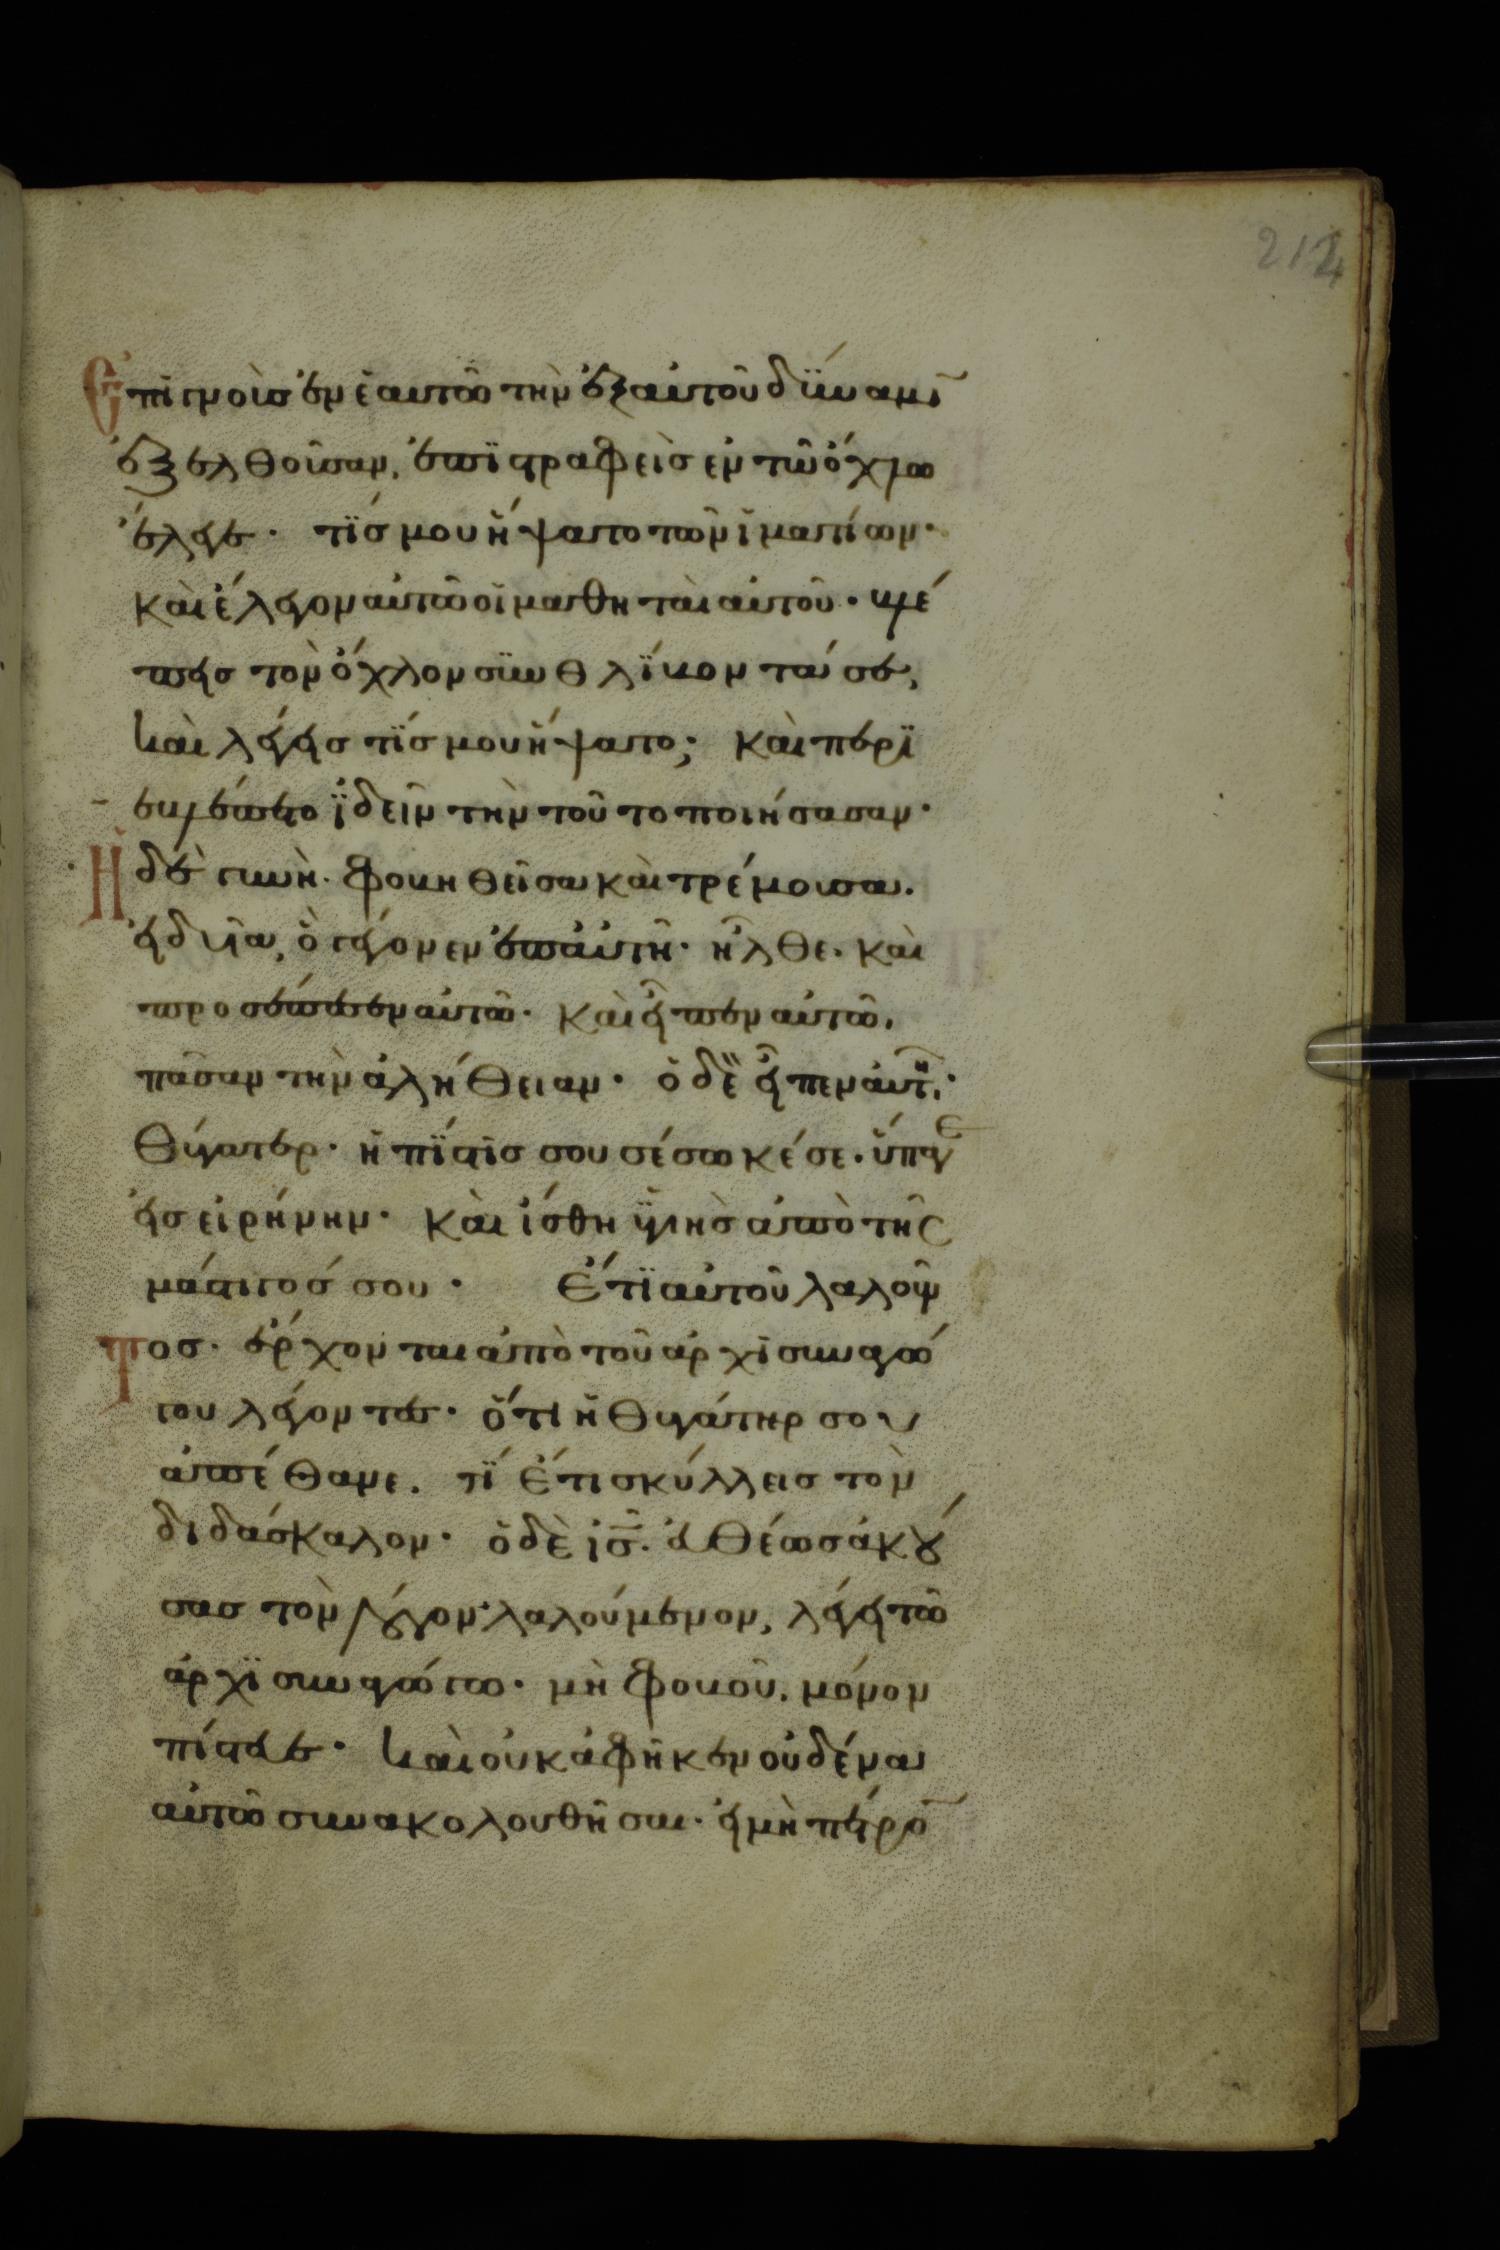 214
Ἐπιγνοὺς ἐν ἑαυτῶ τὴν ἐξ αὐτοῦ δύναμῑ
ἐξελθοῦσαν, ἐπιστραφεὶς εν τῶ ὄχλω
ἔλεγε· τίς μου ἥψατο τῶν ἱματίων·
καὶ ἔλεγον αὐτῶ οἱ μαθηταὶ αὐτοῦ· βλέ
πεις τὸν ὄχλον συνθλίβοντά σε,
καὶ λέγεις τίς μου ἥψατο; καὶ περϊ
εβλέπετο ϊδεῖν τὴν τοῦτο ποιήσασαν·
Ἡ δὲ γυνὴ. φοβηθεῖσα καὶ τρέμουσα.
εἰδυῖα, ὃ γέγονεν ἐπ' αὐτῆ· ἦλθε. καὶ
προσέπεσεν αὐτῶ. καὶ εἶπεν αὐτῶ,
πᾶσαν τὴν ἀλήθειαν· ὁ δὲ εἶπεν αὐτῆ·
Θύγατερ· ἡ πίστις σου σέσωκέ σε. ὕπαγε
εἰς εἰρήνην· καὶ ἴσθη ὑγιὴς ἀπὸ τῆς
μάστιγός σου· Ἔτι αὐτοῦ λαλοῦν
Τος· ἔρχονται ἀπὸ τοῦ ἀρχισυναγώ
γου λέγοντες· ὅτι ἡ θυγάτηρ σου
ἀπέθανε. τί ἔτι σκύλλεις τὸν
διδάσκαλον· ὁ δὲ ι̅ς̅. εὐθέως ἀκού
σας τὸν λόγον λαλούμενον, λέγει τῶ
ἀρχισυναγώγω· μὴ φοβοῦ. μόνον
πίστευε· καὶ οὐκ ἀφῆκεν οὐδένα
αὐτῶ συνακολουθῆσαι. εἰ μὴ πέτρο̅